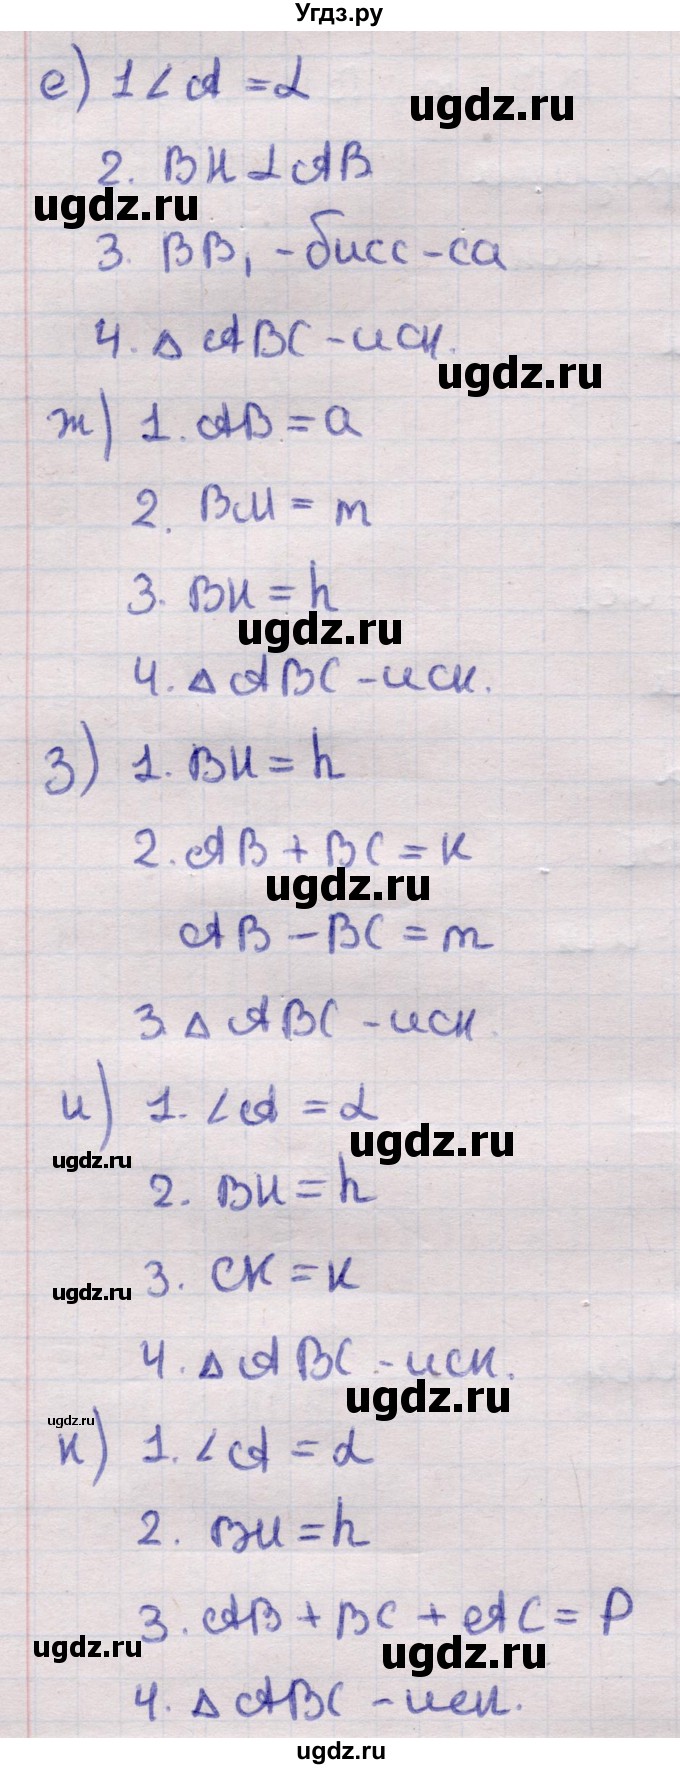 Угдз.ру
е) 1 ∠A = α
ugdz.ru
2. BH ⊥ AB
ugdz.ru
3. BB₁ - бисс-са
4. △ ABC - иск.
ugdz.ru
ж) 1. AB = a
2. BM = m
3. BH = h
ugdz.ru
4. △ ABC - иск.
з) 1. BH = h
2. AB + BC = к
ugdz.ru
AB - BC = m
3. △ ABC - иск
и) 1. ∠A = α
ugdz.ru
ugdz.ru
2. BH = h
3. CK = к
ugdz.ru
4. △ ABC - иск.
ugdz.ru
ugdz.ru
к) 1. ∠A = α
2. BH = h
3. AB + BC + AC = P
ugdz.ru
ugdz.ru
4. △ ABC - иск.
ugdz.ru